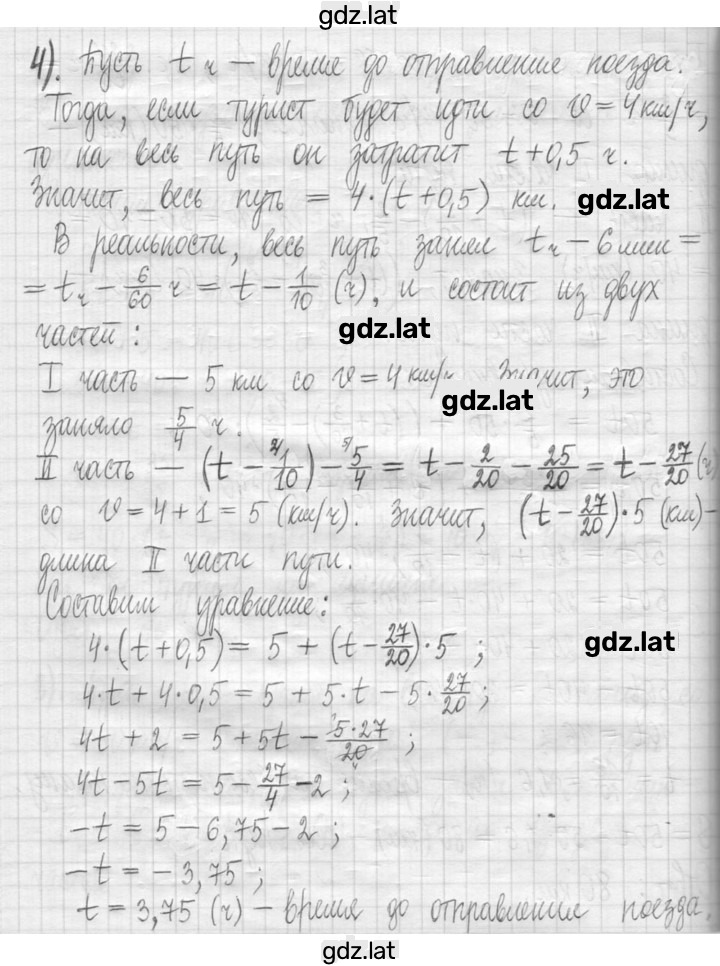 gdz.lat
4). Пусть t ч – время до отправление поезда.
Тогда, если турист будет идти со v = 4 км/ч,
то на весь путь он затратит t + 0,5 ч.
Значит, весь путь = 4·(t + 0,5) км. gdz.lat
В реальности, весь путь занял t ч – 6 мин =
= t ч – 6/60 ч = t – 1/10 (ч), и состоит из двух
частей: gdz.lat
I часть — 5 км со v = 4 км/ч. Значит, это
gdz.lat
заняло 5/4 ч.
II часть — (t – 1/10) – 5/4 = t – 2/20 – 25/20 = t – 27/20 (ч)
со v = 4 + 1 = 5 (км/ч). Значит, (t – 27/20)·5 (км) –
длина II части пути.
Составим уравнение:
4·(t + 0,5) = 5 + (t – 27/20)·5 ; gdz.lat
4·t + 4·0,5 = 5 + 5·t – 5·27/20 ;
4t + 2 = 5 + 5t – 5·27/20 ;
4t – 5t = 5 – 27/4 – 2 ;
–t = 5 – 6,75 – 2 ;
–t = – 3,75 ;
t = 3,75 (ч) – время до отправление поезда.
gdz.lat